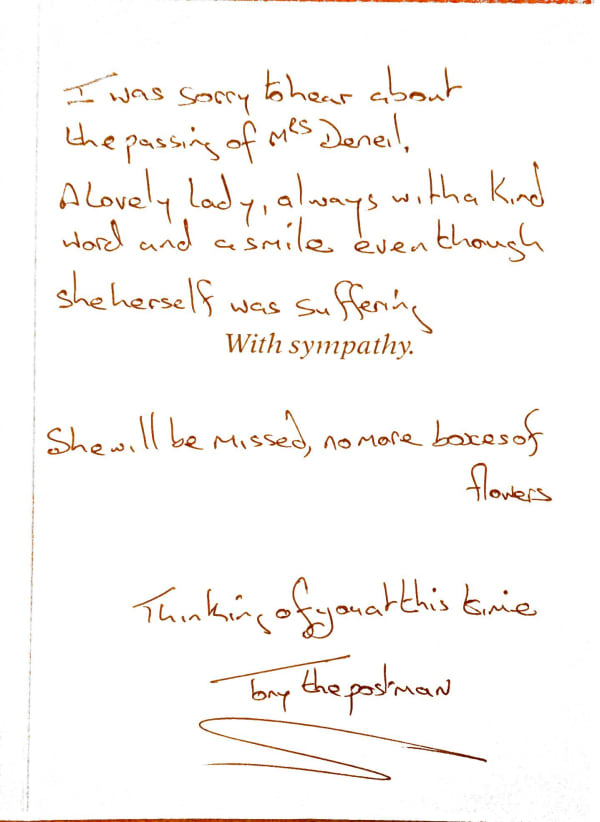 I was sorry to hear about
the passing of Mrs Deneil,
A lovely lady, always with a kind
word and a smile even though
she herself was suffering
With sympathy.
She will be missed, no more boxes of
flowers
Thinking of you at this time
Tony the postman